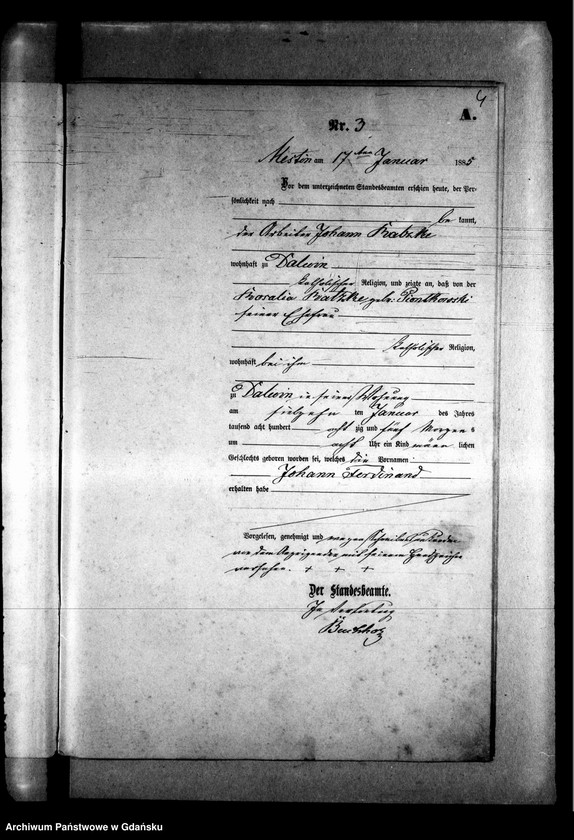 4
A.
Nr. 3
Mestin am 17ten Januar 1885
Vor dem unterzeichneten Standesbeamten erschien heute, der Per-
sönlichkeit nach
be kannt,
der Arbeiter Johann Kratzke
wohnhaft zu Dalwin
katholischer Religion, und zeigte an, daß von der
Rosalia Kratzke geb: Piontkowski
seiner Ehefrau
katholischer Religion,
wohnhaft bei ihm
zu Dalwin in seiner Wohnung
am siebzehn ten Januar des Jahres
tausend acht hundert acht zig und fünf Morgen s
um acht Uhr ein Kind männ lichen
Geschlechts geboren worden sei, welches die Vornamen
Johann Ferdinand
erhalten habe
Vorgelesen, genehmigt und wegen
von dem Anzeigenden mit seinem Handzeichen
versehen. + + +
Der Standesbeamte.
In Vertretung
Archiwum Państwowe w Gdańsku